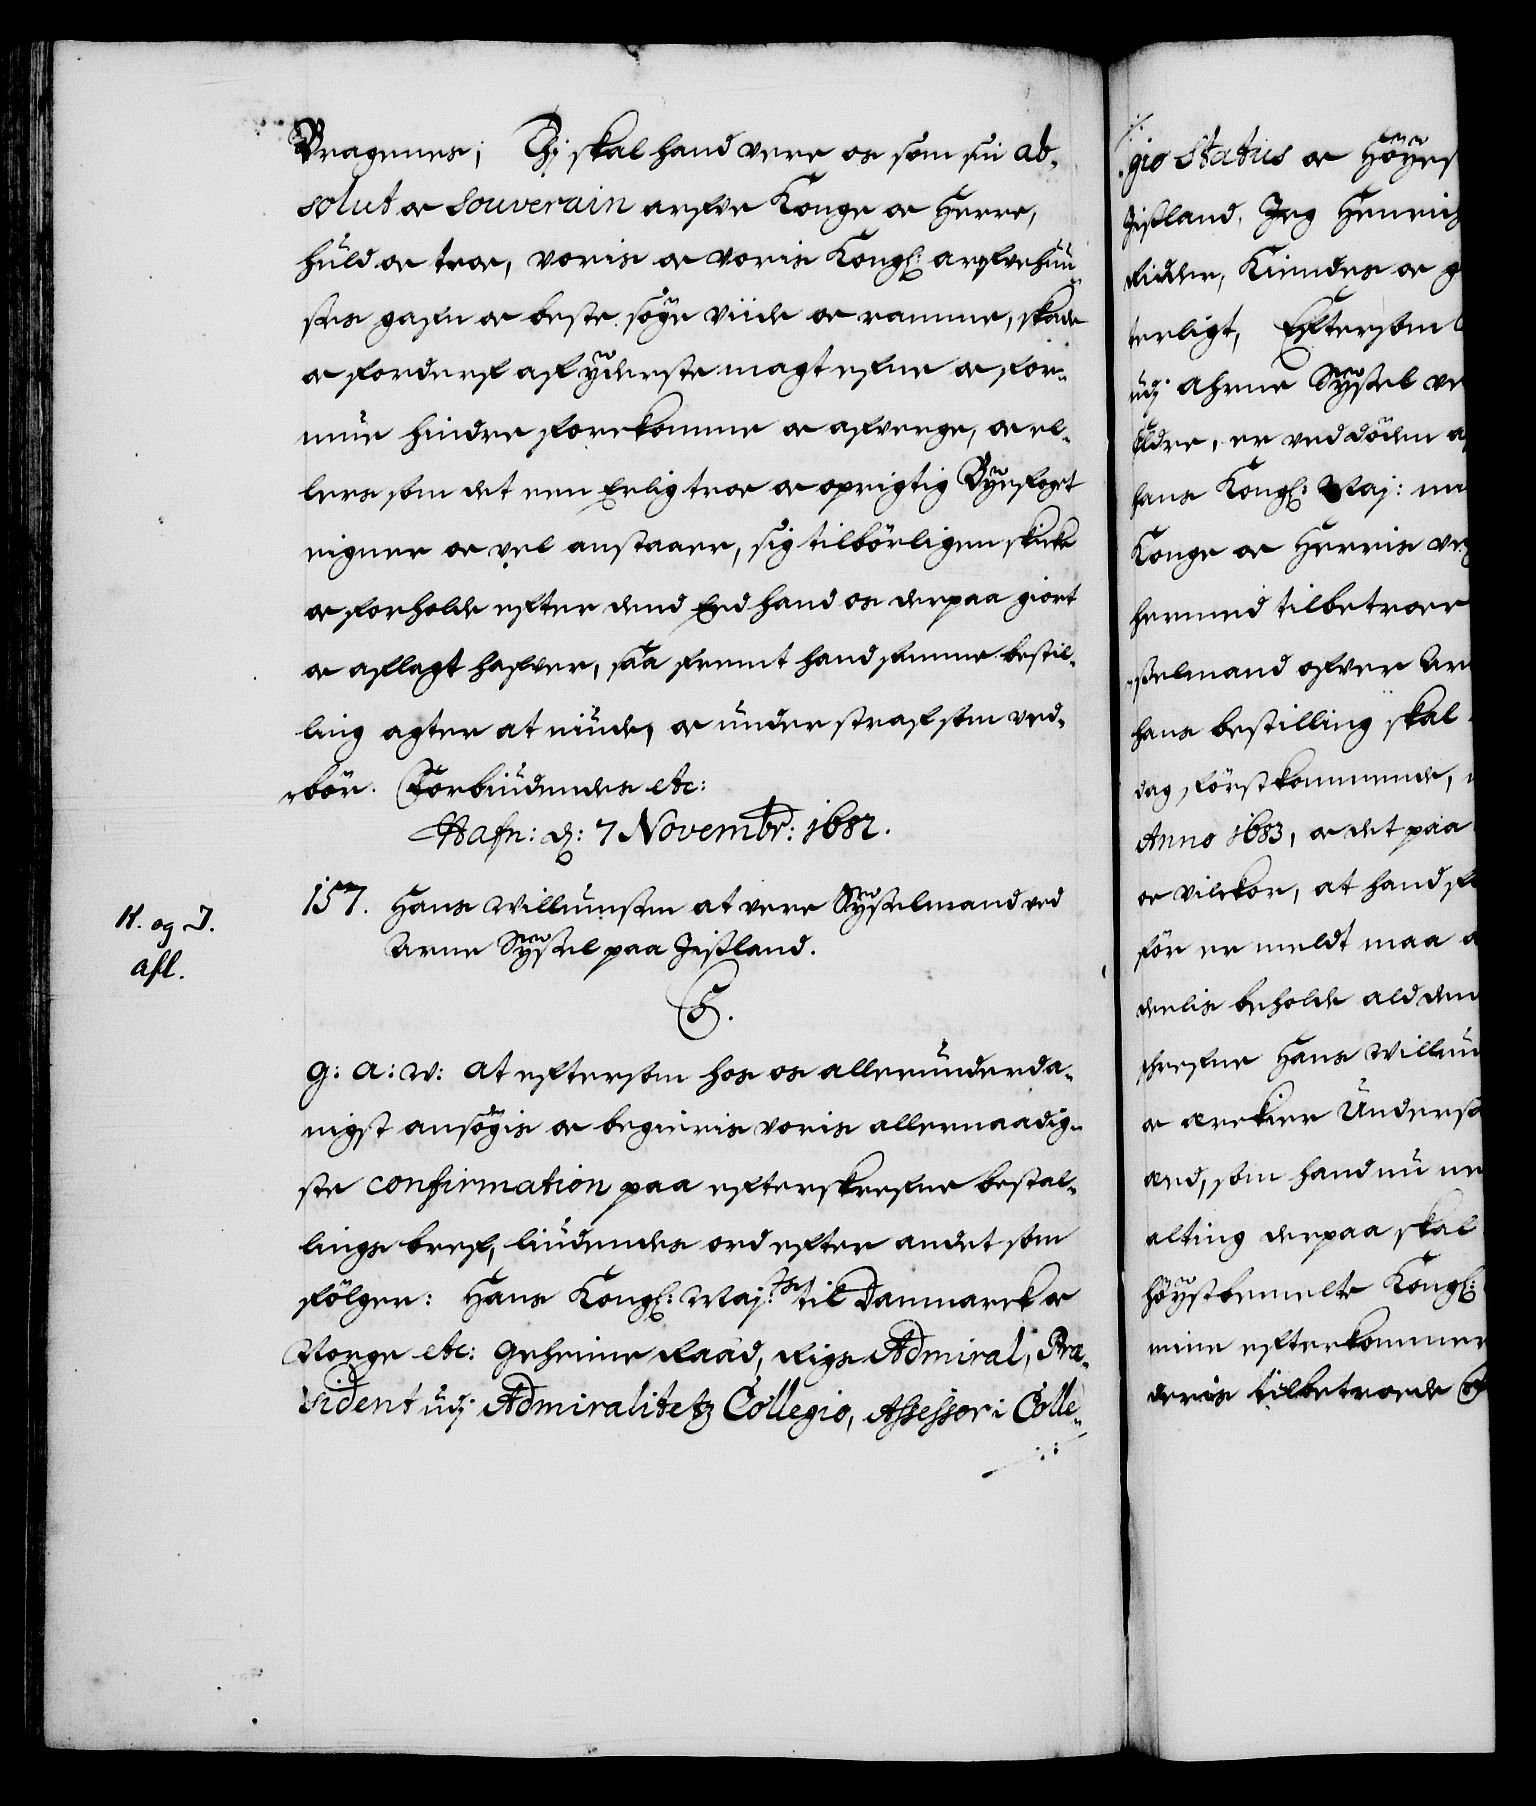 Bragenes; Thj skal hand vere os som sin ab-
solut oc souverain arfve Konge oc Herre,
huld oc troe, voris oc voris Kongl: arfvehuu-
ses gafn oc beste søge viide oc ramme, skade
oc forderf af yderste magt efne oc for-
mue hindre forekomme oc afverge, oc el-
lers som det een Erlig troe oc oprigtig Byefoget
eigner oc vel anstaaer, sig tilbörligen skicke
oc forholde efter dend Eed hand os derpaa giort
oc aflagt hafver, saa fremt hand samme bestil-
ling agter at niude, oc under straf som ved-
bör. Forbiudendes etc:
Hafn: d: 7 Novembr: 1682.
157. Hans Willumsen at vere Sysselmand ved
Arne Syssel paa Jisland.
C5.
G: A: W: At eftersom hos os allerunderda-
nigst ansögis oc begieris voris allernaadig-
ste confirmation paa efterskrefne bestal-
lings bref, liudendes ord efter andet som
fölger: Hans Kongl: Maj:ts til Danmarck oc
Norge etc: Geheime Raad, Rigs Admiral, Præ-
sident udj Admiralitetz Collegio, Assessor i Colle-
H. og I.
afl.
gio Status oc Höyes
Jisland, Jeg Henrich
Ridder, Kiendes oc g
terligt, Eftersom
udj Ahrne Syssel ve
Eldre, er ved döden a
hans Kongl: Maj: mi
Konge oc Herris ve
hermed tilbetroer
sselmand ofver Ar
hans bestilling skal
dag förstkommende,
Anno 1683, oc det paa
oc vilckor, at hand s
för er meldt maa
deelis beholde ald den
schrefne Hans Willum
oc arckier Underso
aed, som hand nu ne
alting derpaa skal
höystbemelte Kongl:
mine efterkommer
deris tilbetroede